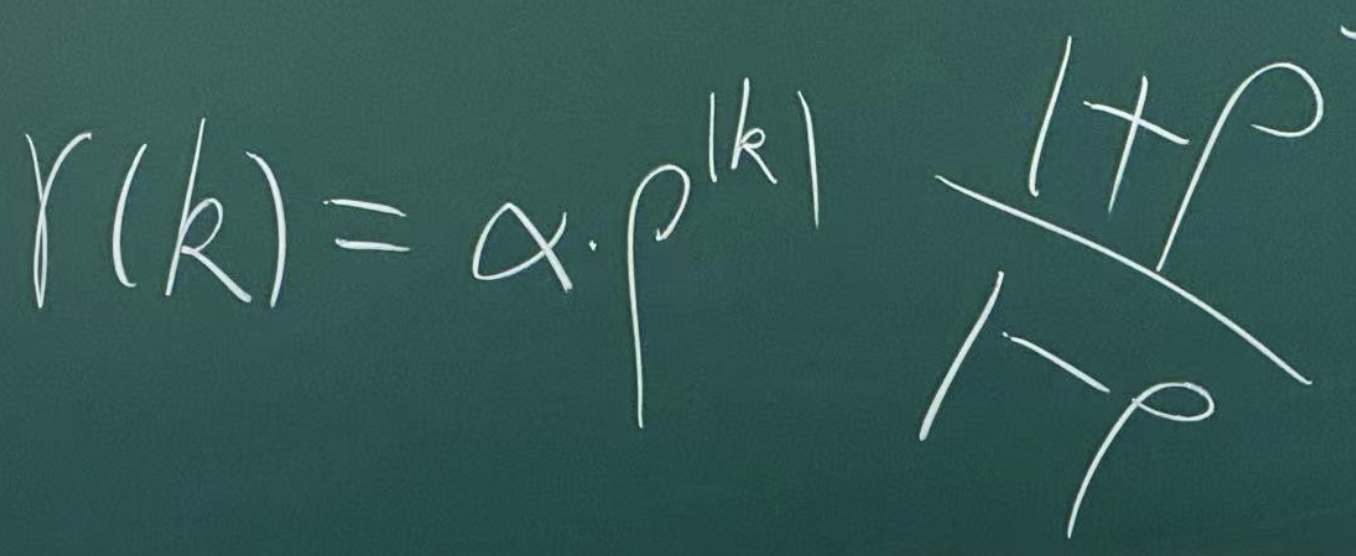 γ(k) = α·ρ^|k| (1+ρ)/(1-ρ)